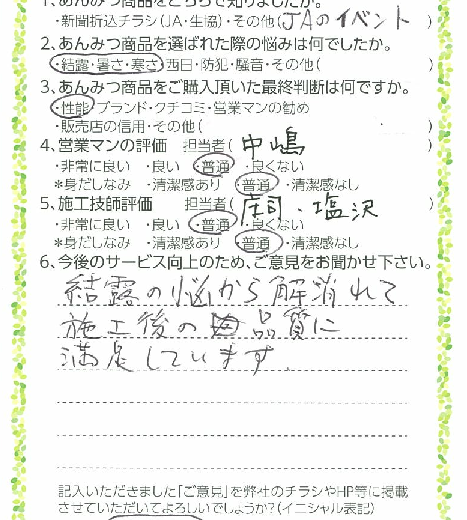 1、あんみつ商品をどちらで知りましたか。
・新聞折込チラシ(JA・生協)・その他(JAのイベント
2、あんみつ商品を選ばれた際の悩みは何でしたか。
・結露・暑さ・寒さ・西日・防犯・騒音・その他( )
3、あんみつ商品をご購入頂いた最終判断は何ですか。
・性能・ブランド・クチコミ・営業マンの勧め
・販売店の信用・その他( )
4、営業マンの評価 担当者(中嶋 )
・非常に良い ・良い ・普通 ・良くない
*身だしなみ ・清潔感あり ・普通 ・清潔感なし
5、施工技師評価 担当者(庄司・塩沢 )
・非常に良い ・良い ・普通 ・良くない
*身だしなみ ・清潔感あり ・普通 ・清潔感なし
6、今後のサービス向上のため、ご意見をお聞かせ下さい。
結露の悩から解消れて
施工後の品質に
満足しています.
記入いただきました「ご意見」を弊社のチラシやHP等に掲載
させていただいてよろしいでしょうか?(イニシャル表記)